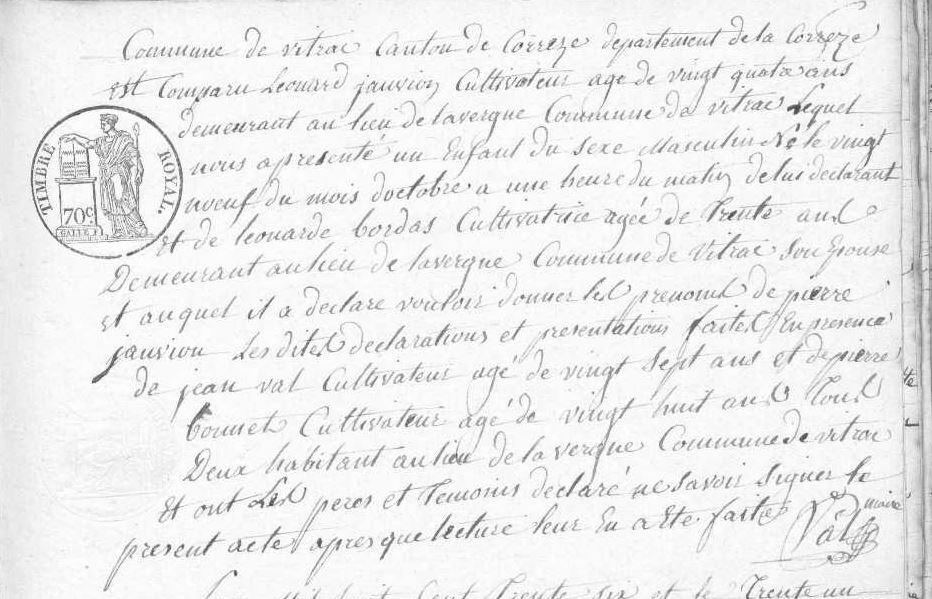 Commune de vitrac Canton de Correze departement de la Correze
Est Comparu Leonard janvion Cultivateur age de vingt quatre ans
demeurant au lieu de lavergne Commune de vitrac Lequel
nous apresenté un Enfant du sexe Masculin Né le vingt
noeuf du mois doctobre a une heure du matin de lui declarant
et de leonarde bordas Cultivatrice agée de Trente ans
Demeurant au lieu de lavergne Commune de Vitrac son Epouse
et auquel il a declare vouloir donner les prenoms de pierre
janvion Les dites declarations et presentations faites En presence
de jean val Cultivateur agé de vingt sept ans et de pierre
bonnet Cultivateur agé de vingt huit ans Tous
Deux habitant au lieu de la vergne Commune de vitrac
Et ont Les peres et Temoins declaré ne savoir signer le
present acte apres que lecture leur En a Ete faite
Val maire
TIMBRE ROYAL.
70c.
GALLE
Cent Trente six et le Trente un